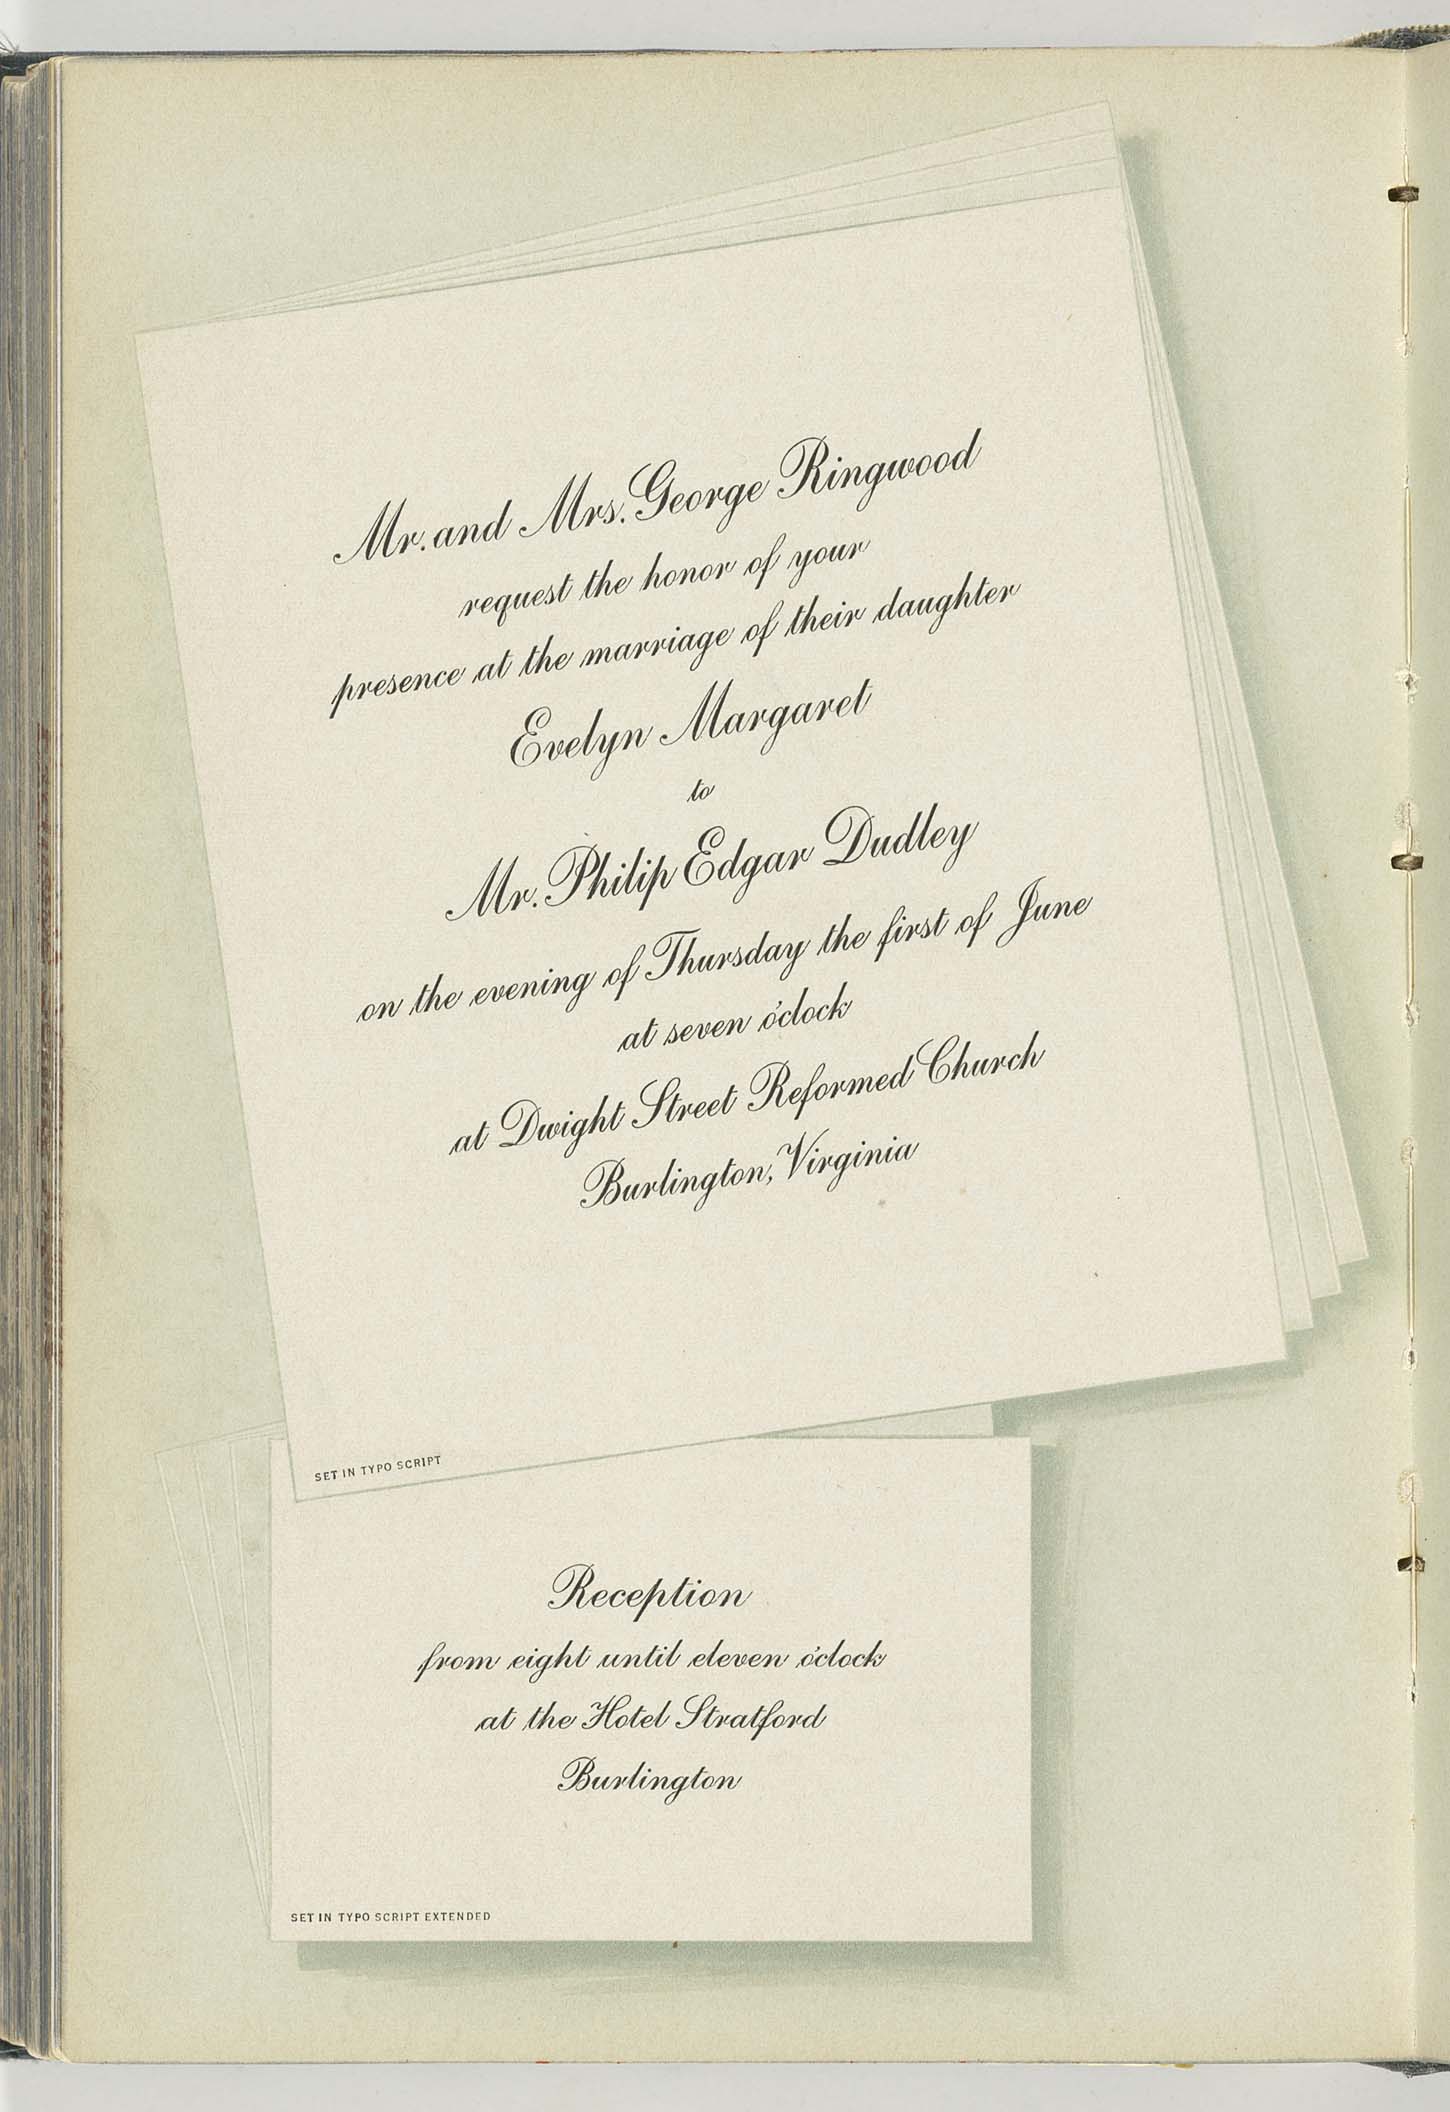 Mr. and Mrs. George Ringwood
request the honor of your
presence at the marriage of their daughter
Evelyn Margaret
to
Mr. Philip Edgar Dudley
on the evening of Thursday the first of June
at seven o'clock
at Dwight Street Reformed Church
Burlington, Virginia
SET IN TYPO SCRIPT
Reception
from eight until eleven o'clock
at the Hotel Stratford
Burlington
SET IN TYPO SCRIPT EXTENDED